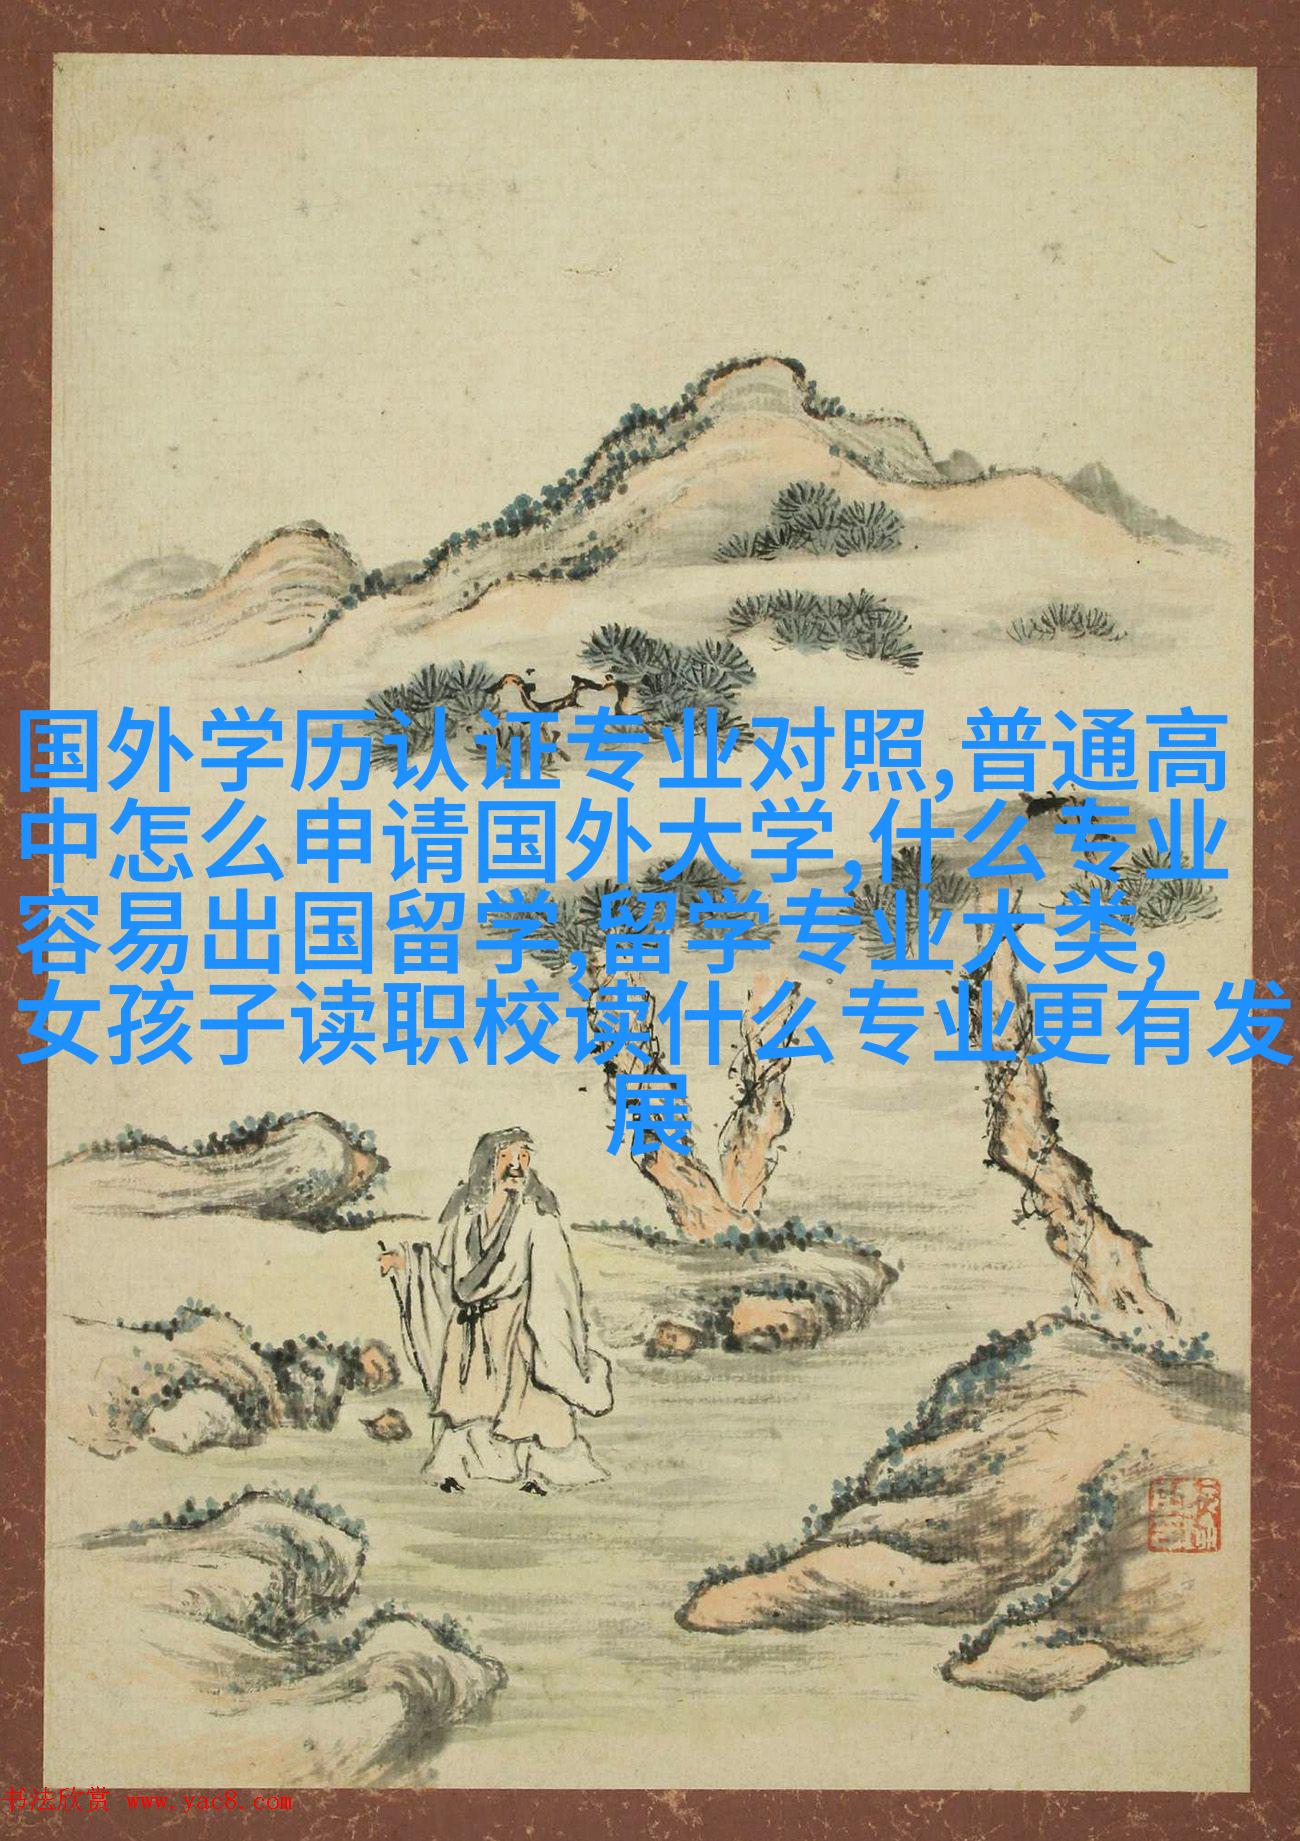 国外学历认证专业对照,普通高
中怎么申请国外大学,什么专业
容易出国留学,留学专业大类,
女孩子读职校读什么专业更有发
展
书法欣赏 www.yac8.com